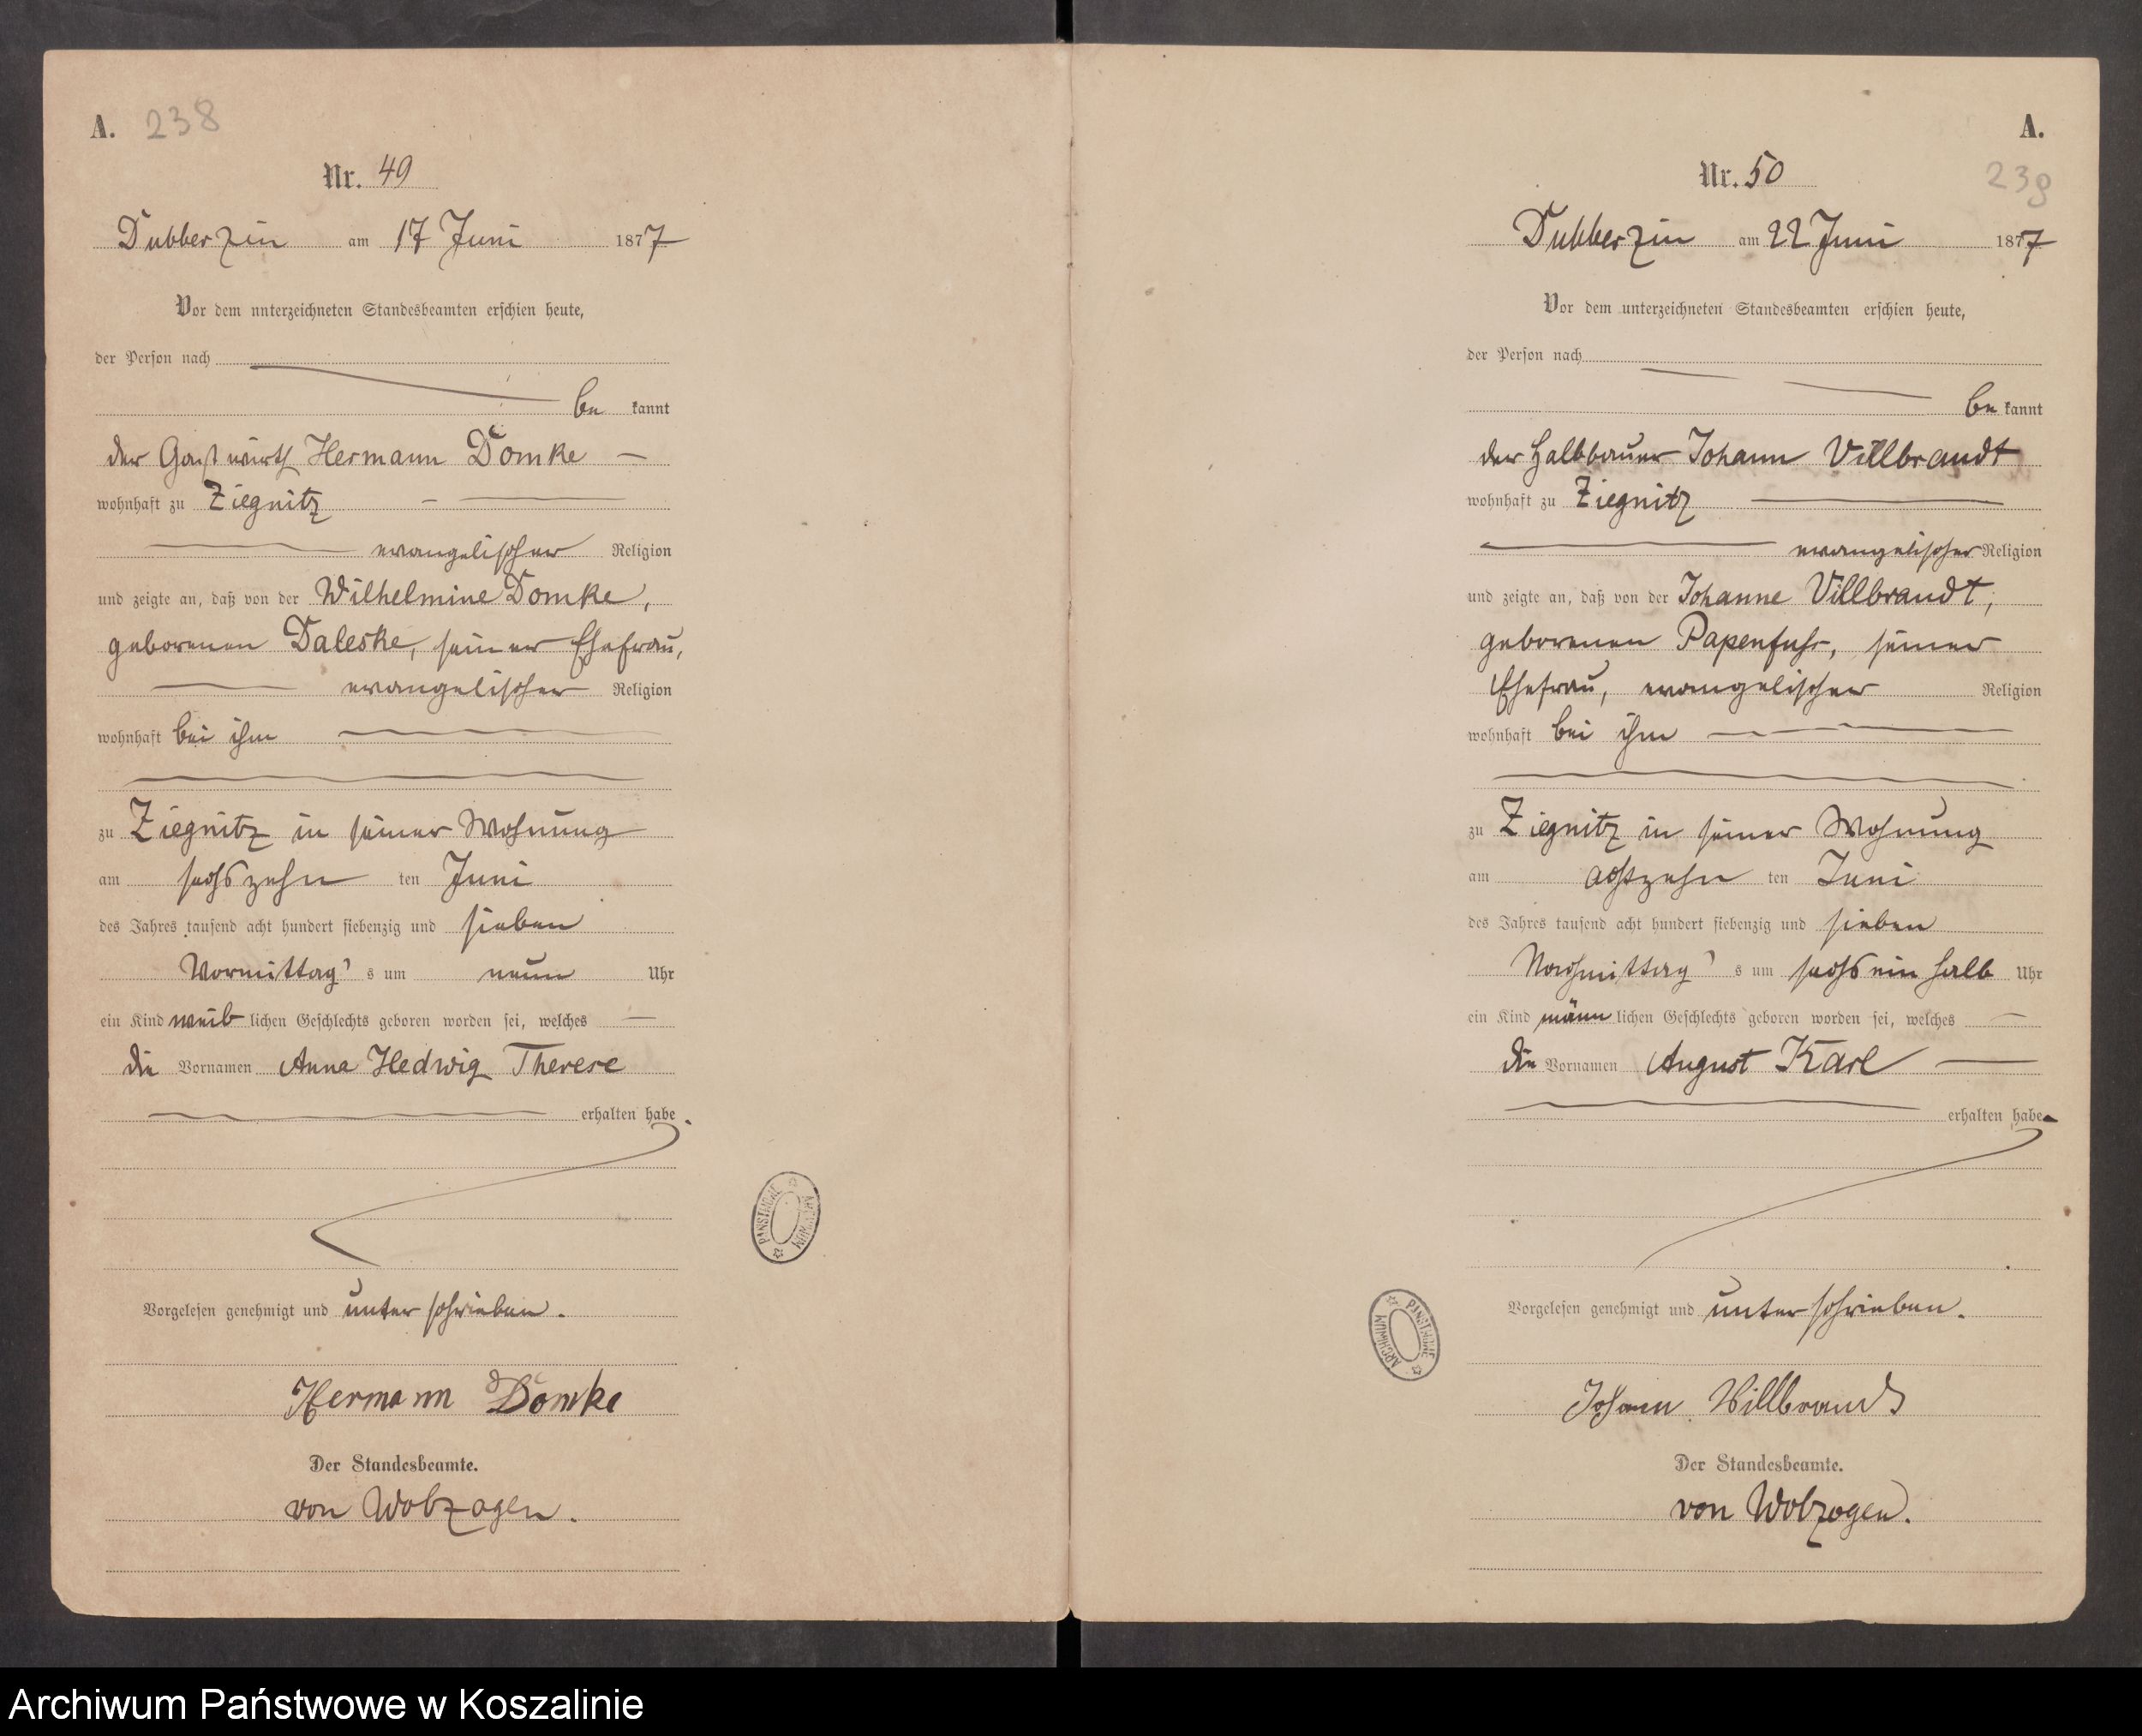 A. 238
Nr. 49
Dubberzin am 17 Juni 1877
Vor dem unterzeichneten Standesbeamten erschien heute,
der Person nach
be kannt
der Gastwirth Hermann Domke —
wohnhaft zu Ziegnitz —
evangelischer Religion
und zeigte an, daß von der Wilhelmine Domke,
geborenen Daleske, seiner Ehefrau,
evangelischer Religion
wohnhaft bei ihm
zu Ziegnitz in seiner Wohnung
am sechszehn ten Juni
des Jahres tausend acht hundert siebenzig und sieben
Vormittag's um neun Uhr
ein Kind weib lichen Geschlechts geboren worden sei, welches —
die Vornamen Anna Hedwig Therese
erhalten habe.
Vorgelesen genehmigt und unterschrieben.
Hermann Domke
Der Standesbeamte.
von Wolzogen.
PAŃSTWOWE ARCHIWUM
A.
Nr. 50
239
Dubberzin am 22 Juni 1877
Vor dem unterzeichneten Standesbeamten erschien heute,
der Person nach
be kannt
der Halbbauer Johann Villbrandt
wohnhaft zu Ziegnitz —
evangelischer Religion
und zeigte an, daß von der Johanne Villbrandt,
geborenen Papenfuhs, seiner
Ehefrau, evangelischer Religion
wohnhaft bei ihm
zu Ziegnitz in seiner Wohnung
am achtzehn ten Juni
des Jahres tausend acht hundert siebenzig und sieben
Nachmittag's um sechs ein halb Uhr
ein Kind männ lichen Geschlechts geboren worden sei, welches —
die Vornamen August Karl —
erhalten habe.
Vorgelesen genehmigt und unterschrieben.
Johann Villbrandt
Der Standesbeamte.
von Wolzogen.
PAŃSTWOWE ARCHIWUM
Archiwum Państwowe w Koszalinie